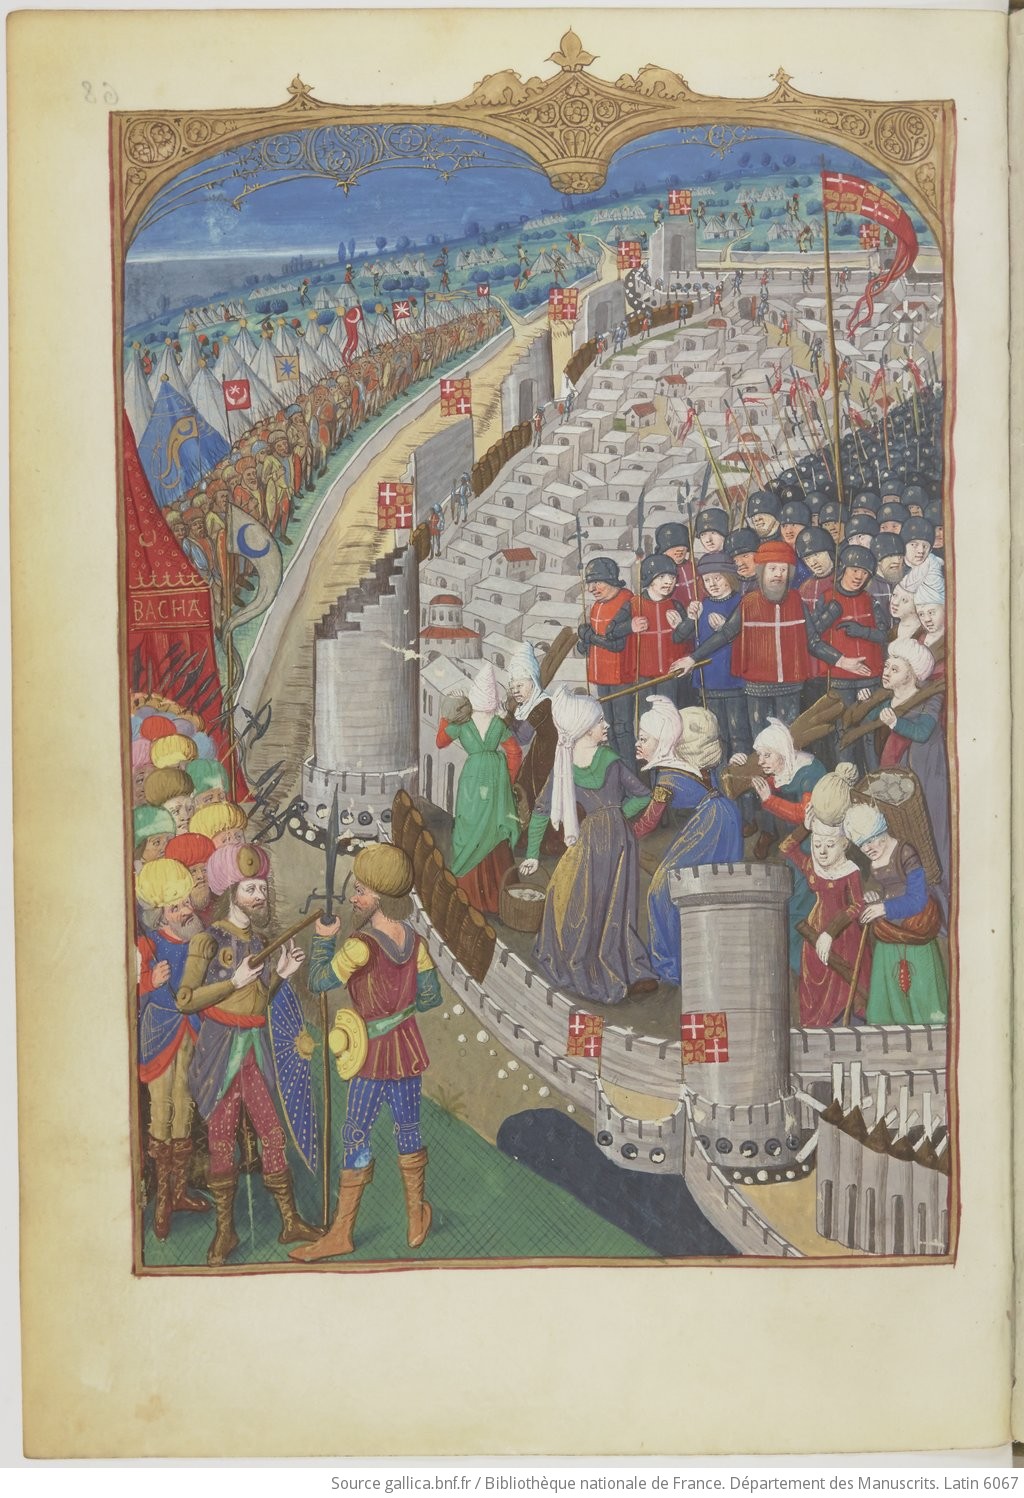 BACHA.
Source gallica.bnf.fr / Bibliothèque nationale de France. Département des Manuscrits. Latin 6067